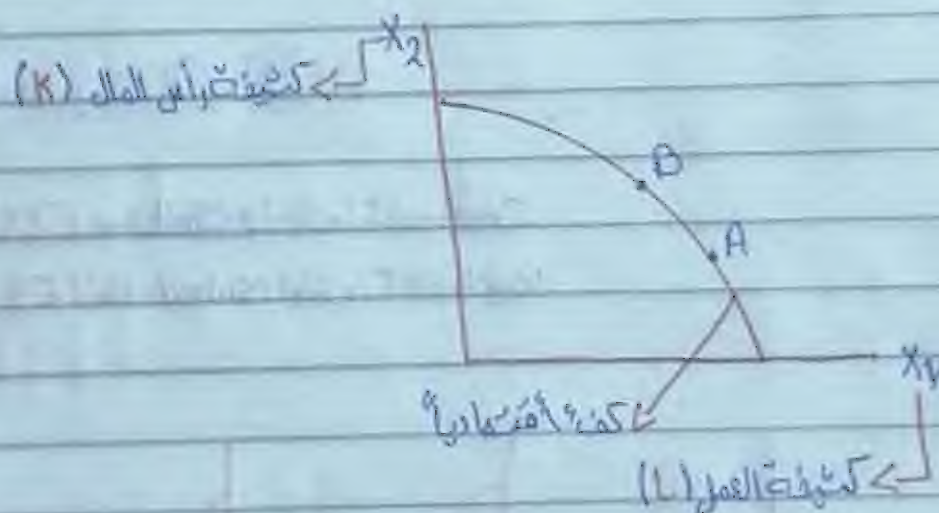 X2
كثيفة رأس المال (K)
B
A
X1
كفء أقتصادياً
كثيفة العمل (L)